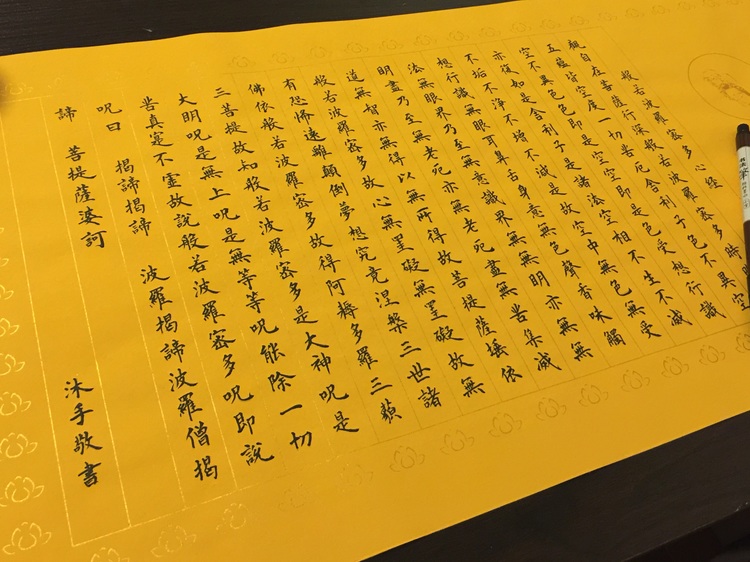 般若波羅密多心經
觀自在菩薩行深般若波羅密多時
五蘊皆空度一切苦厄舍利子色不異空
空不異色色即是空空即是色受想行識
亦復如是舍利子是諸法空相不生不滅
不垢不淨不增不減是故空中無色無受
想行識無眼耳鼻舌身意無色聲香味觸
法無眼界乃至無意識界無無明亦無無
明盡乃至無老死亦無老死盡無苦集滅
道無智亦無得以無所得故菩提薩埵依
般若波羅密多故心無罣礙無罣礙故無
有恐怖遠離顛倒夢想究竟涅槃三世諸
佛依般若波羅密多故得阿耨多羅三藐
三菩提故知般若波羅密多是大神呪是
大明呪是無上呪是無等等呪能除一切
苦真寔不虛故說般若波羅密多呪即說
呪曰 揭諦揭諦 波羅揭諦波羅僧揭
諦 菩提薩婆訶
沐手敬書